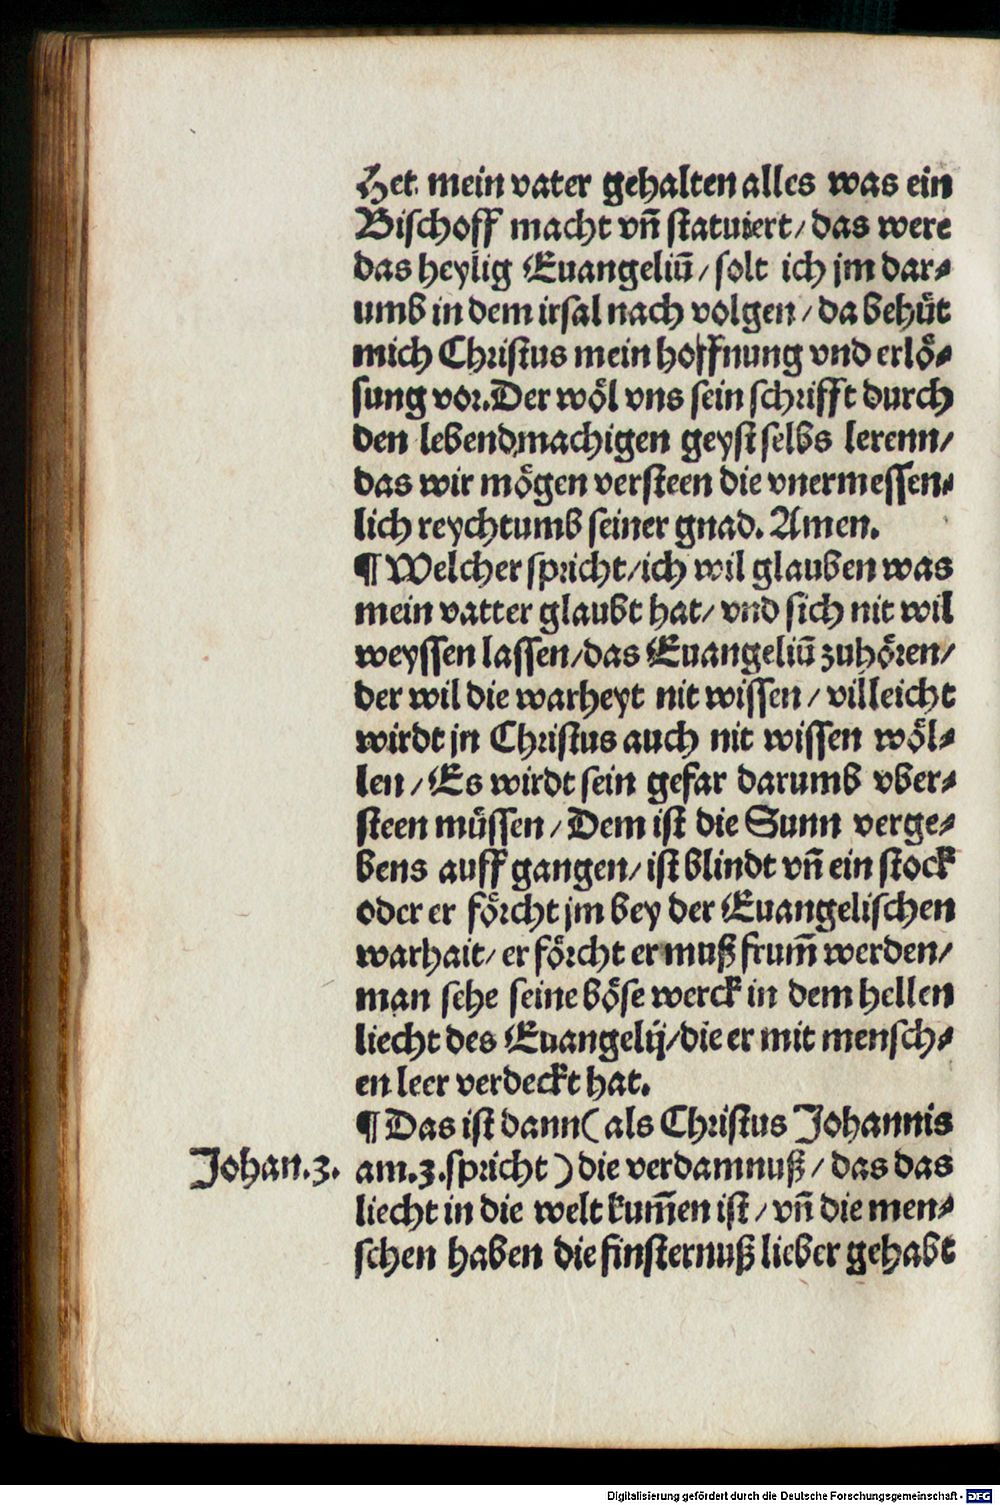 Het mein vater gehalten alles was ein
Bischoff macht vñ statuiert/ das were
das heylig Euangeliū/ solt ich jm dar⸗
umb in dem irsal nach volgen/ da behüt
mich Christus mein hoffnung vnd erlö⸗
sung vor. Der wöl vns sein schrifft durch
den lebendmachigen geyst selbs lerenn/
das wir mögen versteen die vnermessen⸗
lich reychtumb seiner gnad. Amen.
¶ Welcher spricht/ich wil glauben was
mein vatter glaubt hat/ vnd sich nit wil
weyssen lassen/das Euangeliū zuhören/
der wil die warheyt nit wissen/ villeicht
wirdt jn Christus auch nit wissen wöl⸗
len/ Es wirdt sein gefar darumb vber⸗
steen müssen/ Dem ist die Sunn verge⸗
bens auff gangen/ ist blindt vñ ein stock
oder er förcht jm bey der Euangelischen
warhait/ er förcht er muß frum̄ werden/
man sehe seine böse werck in dem hellen
liecht des Euangelij/die er mit mensch⸗
en leer verdeckt hat.
¶ Das ist dann (als Christus Johannis
Johan.3. am.3.spricht) die verdamnuß/ das das
liecht in die welt kum̄en ist/ vñ die men⸗
schen haben die finsternuß lieber gehabt
Digitalisierung gefördert durch die Deutsche Forschungsgemeinschaft - DFG